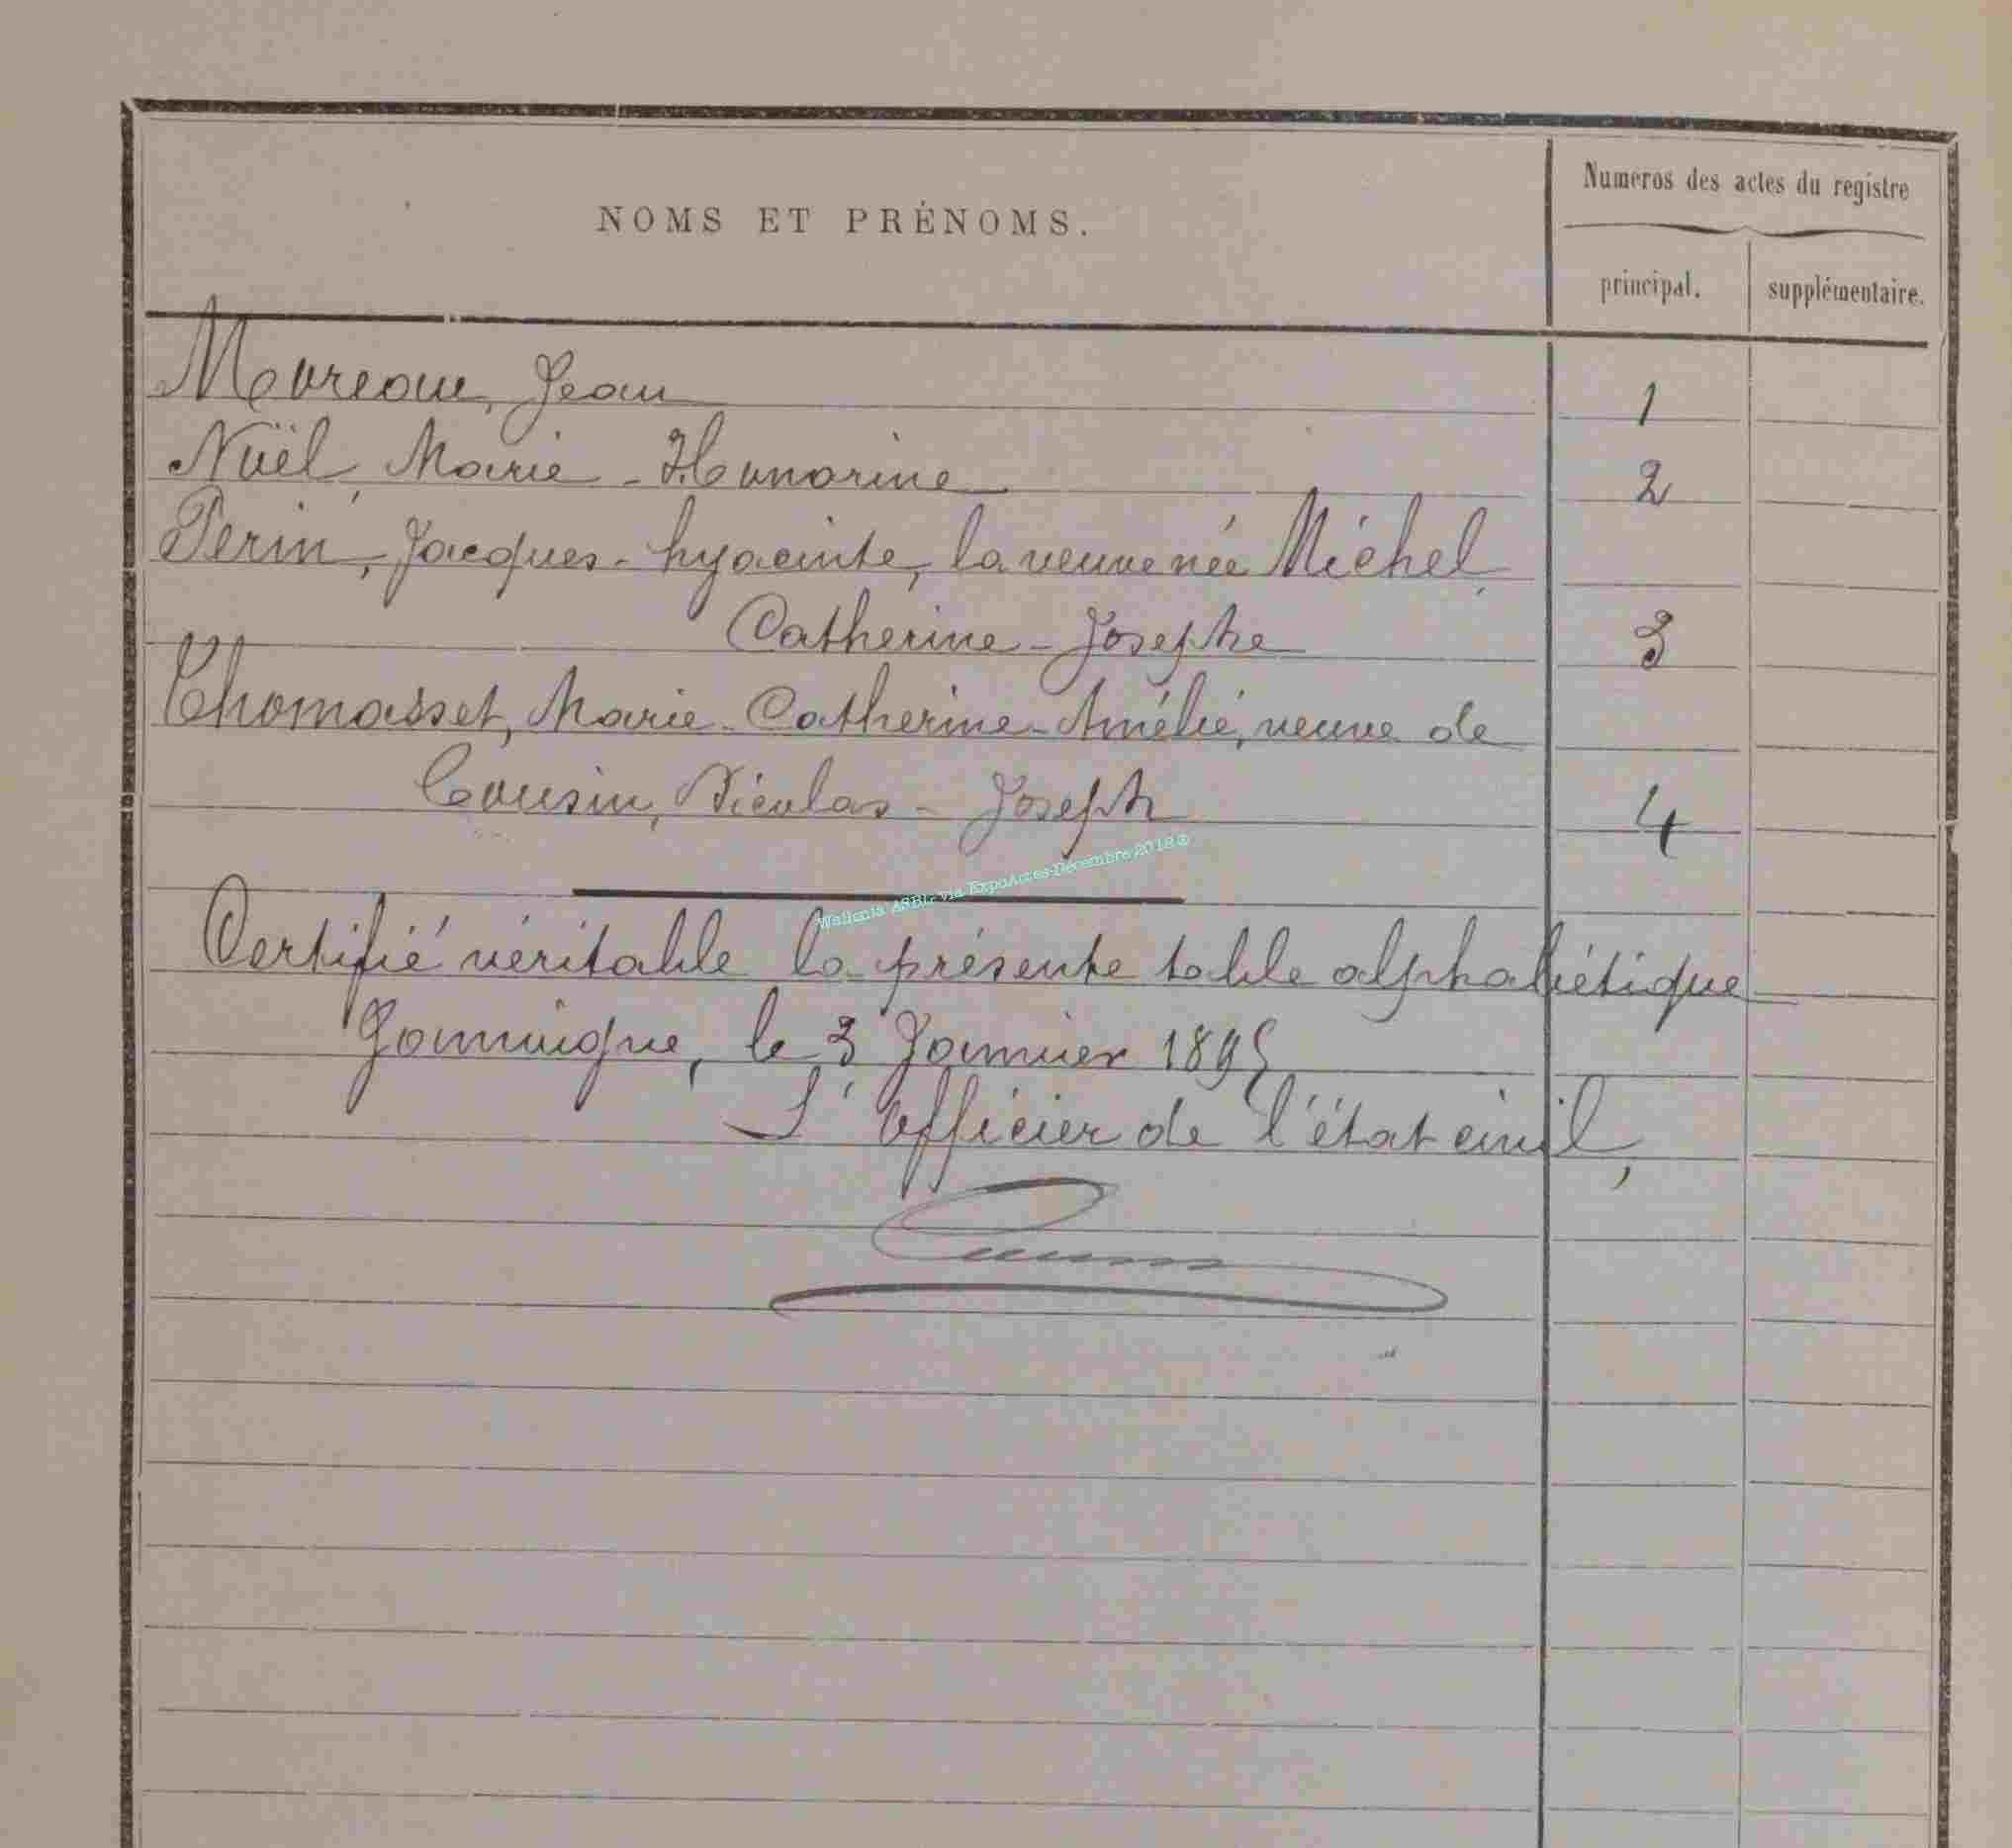 NOMS ET PRÉNOMS.
Numéros des actes du registre
principal. supplémentaire.
Moureau, Jean 1
Noël, Marie-Honorine 2
Perin, Jacques-hyacinte, la veuve née Michel,
Catherine-Josephe 3
Thomasset, Marie-Catherine-Amélie, veuve de
Cousin, Nicolas-Joseph 4
Wallonia ASBL via ExpoActes-Décembre 2018 ©
Certifié véritable la présente table alphabétique
le 3 Janvier 1895
L'officier de l'état civil,